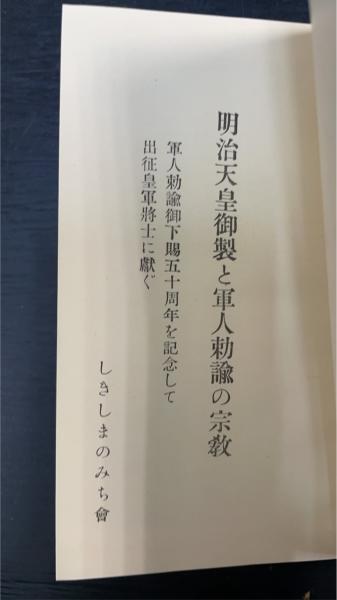 明治天皇御製と軍人勅諭の宗教
軍人勅諭御下賜五十周年を記念して
出征皇軍將士に獻ぐ
しきしまのみち會